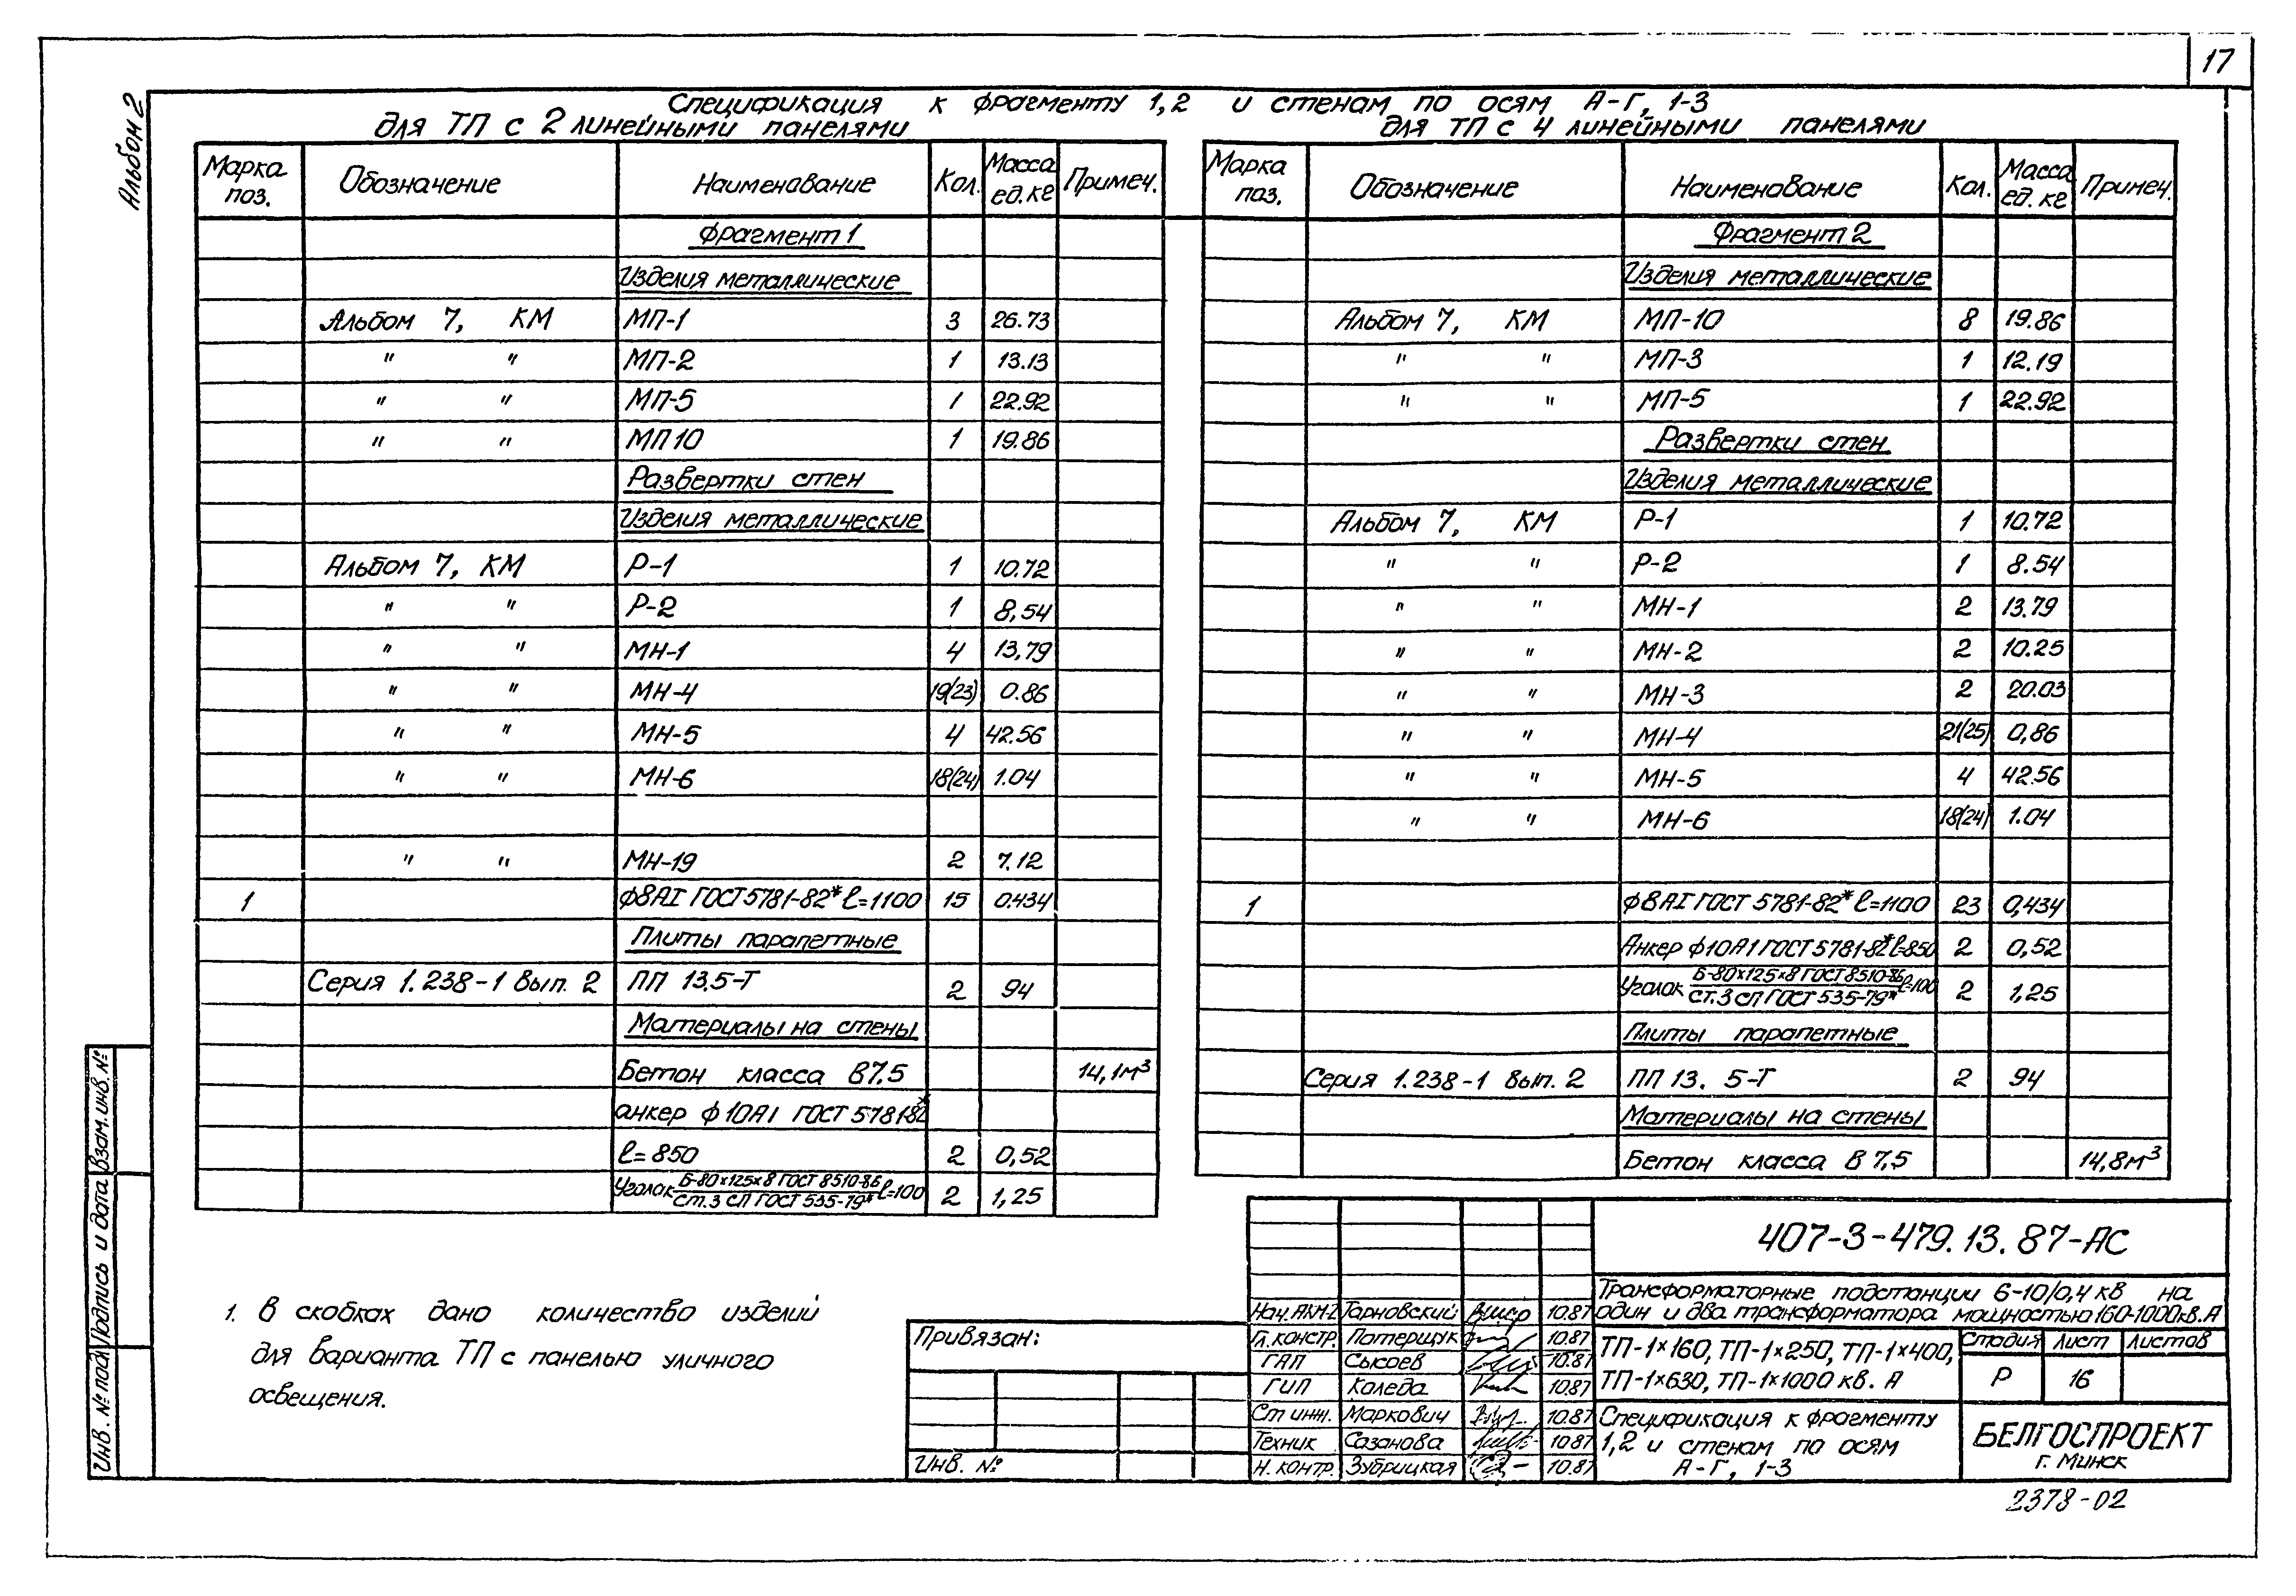 17
Альбом 2
Спецификация к фрагменту 1,2 и стенам по осям А-Г, 1-3
для ТП с 2 линейными панелями
Марка поз. Обозначение Наименование Кол. Масса ед.кг Примеч.
Фрагмент 1
Изделия металлические
Альбом 7, КМ МП-1 3 26.73
" " МП-2 1 13.13
" " МП-5 1 22.92
" " МП10 1 19.86
Развертки стен
Изделия металлические
Альбом 7, КМ Р-1 1 10.72
" " Р-2 1 8,54
" " МН-1 4 13,79
" " МН-4 19(23) 0.86
" " МН-5 4 42.56
" " МН-6 18(24) 1.04
" " МН-19 2 7.12
1 ф8АI ГОСТ 5781-82* ℓ=1100 15 0.434
Плиты парапетные
Серия 1.238-1 вып. 2 ПП 13,5-Т 2 94
Материалы на стены
Бетон класса В7,5 14,1м³
анкер ф10А1 ГОСТ 5781-82*
ℓ=850 2 0,52
Уголок Б-80×125×8 ГОСТ 8510-86 / Ст.3 СП ГОСТ 535-79* ℓ=100 2 1,25
для ТП с 4 линейными панелями
Марка поз. Обозначение Наименование Кол. Масса ед. кг Примеч.
Фрагмент 2
Изделия металлические
Альбом 7, КМ МП-10 8 19.86
" " МП-3 1 12.19
" " МП-5 1 22.92
Развертки стен
Изделия металлические
Альбом 7, КМ Р-1 1 10.72
" " Р-2 1 8.54
" " МН-1 2 13.79
" " МН-2 2 10.25
" " МН-3 2 20.03
" " МН-4 21(25) 0,86
" " МН-5 4 42.56
" " МН-6 18(24) 1.04
1 ф8АI ГОСТ 5781-82* ℓ=1100 23 0,434
Анкер ф10А1 ГОСТ 5781-82* ℓ=850 2 0,52
Уголок Б-80×125×8 ГОСТ 8510-86 / Ст.3 СП ГОСТ 535-79* ℓ=100 2 1,25
Плиты парапетные
Серия 1.238-1 вып. 2 ПП 13. 5-Т 2 94
Материалы на стены
Бетон класса В 7,5 14,8м³
1. В скобках дано количество изделий
для варианта ТП с панелью уличного
освещения.
Взам.инв.№
Подпись и дата
Инв. № подл
Привязан:
Инв. №
Нач.АКМ-2 Тарновский 10.87
Гл.констр. Патерщук 10.87
ГАП Сысоев 10.87
ГИП Коледа 10.87
Ст инж. Маркович 10.87
Техник Сазанова 10.87
Н. контр. Зубрицкая 10.87
407-3-479.13.87-АС
Трансформаторные подстанции 6-10/0,4 кв на
один и два трансформатора мощностью 160-1000кв.А
ТП-1×160, ТП-1×250, ТП-1×400,
ТП-1×630, ТП-1×1000 кв. А
Стадия Лист Листов
Р 16
Спецификация к фрагменту
1,2 и стенам по осям
А-Г, 1-3
БЕЛГОСПРОЕКТ
г. Минск
2378-02